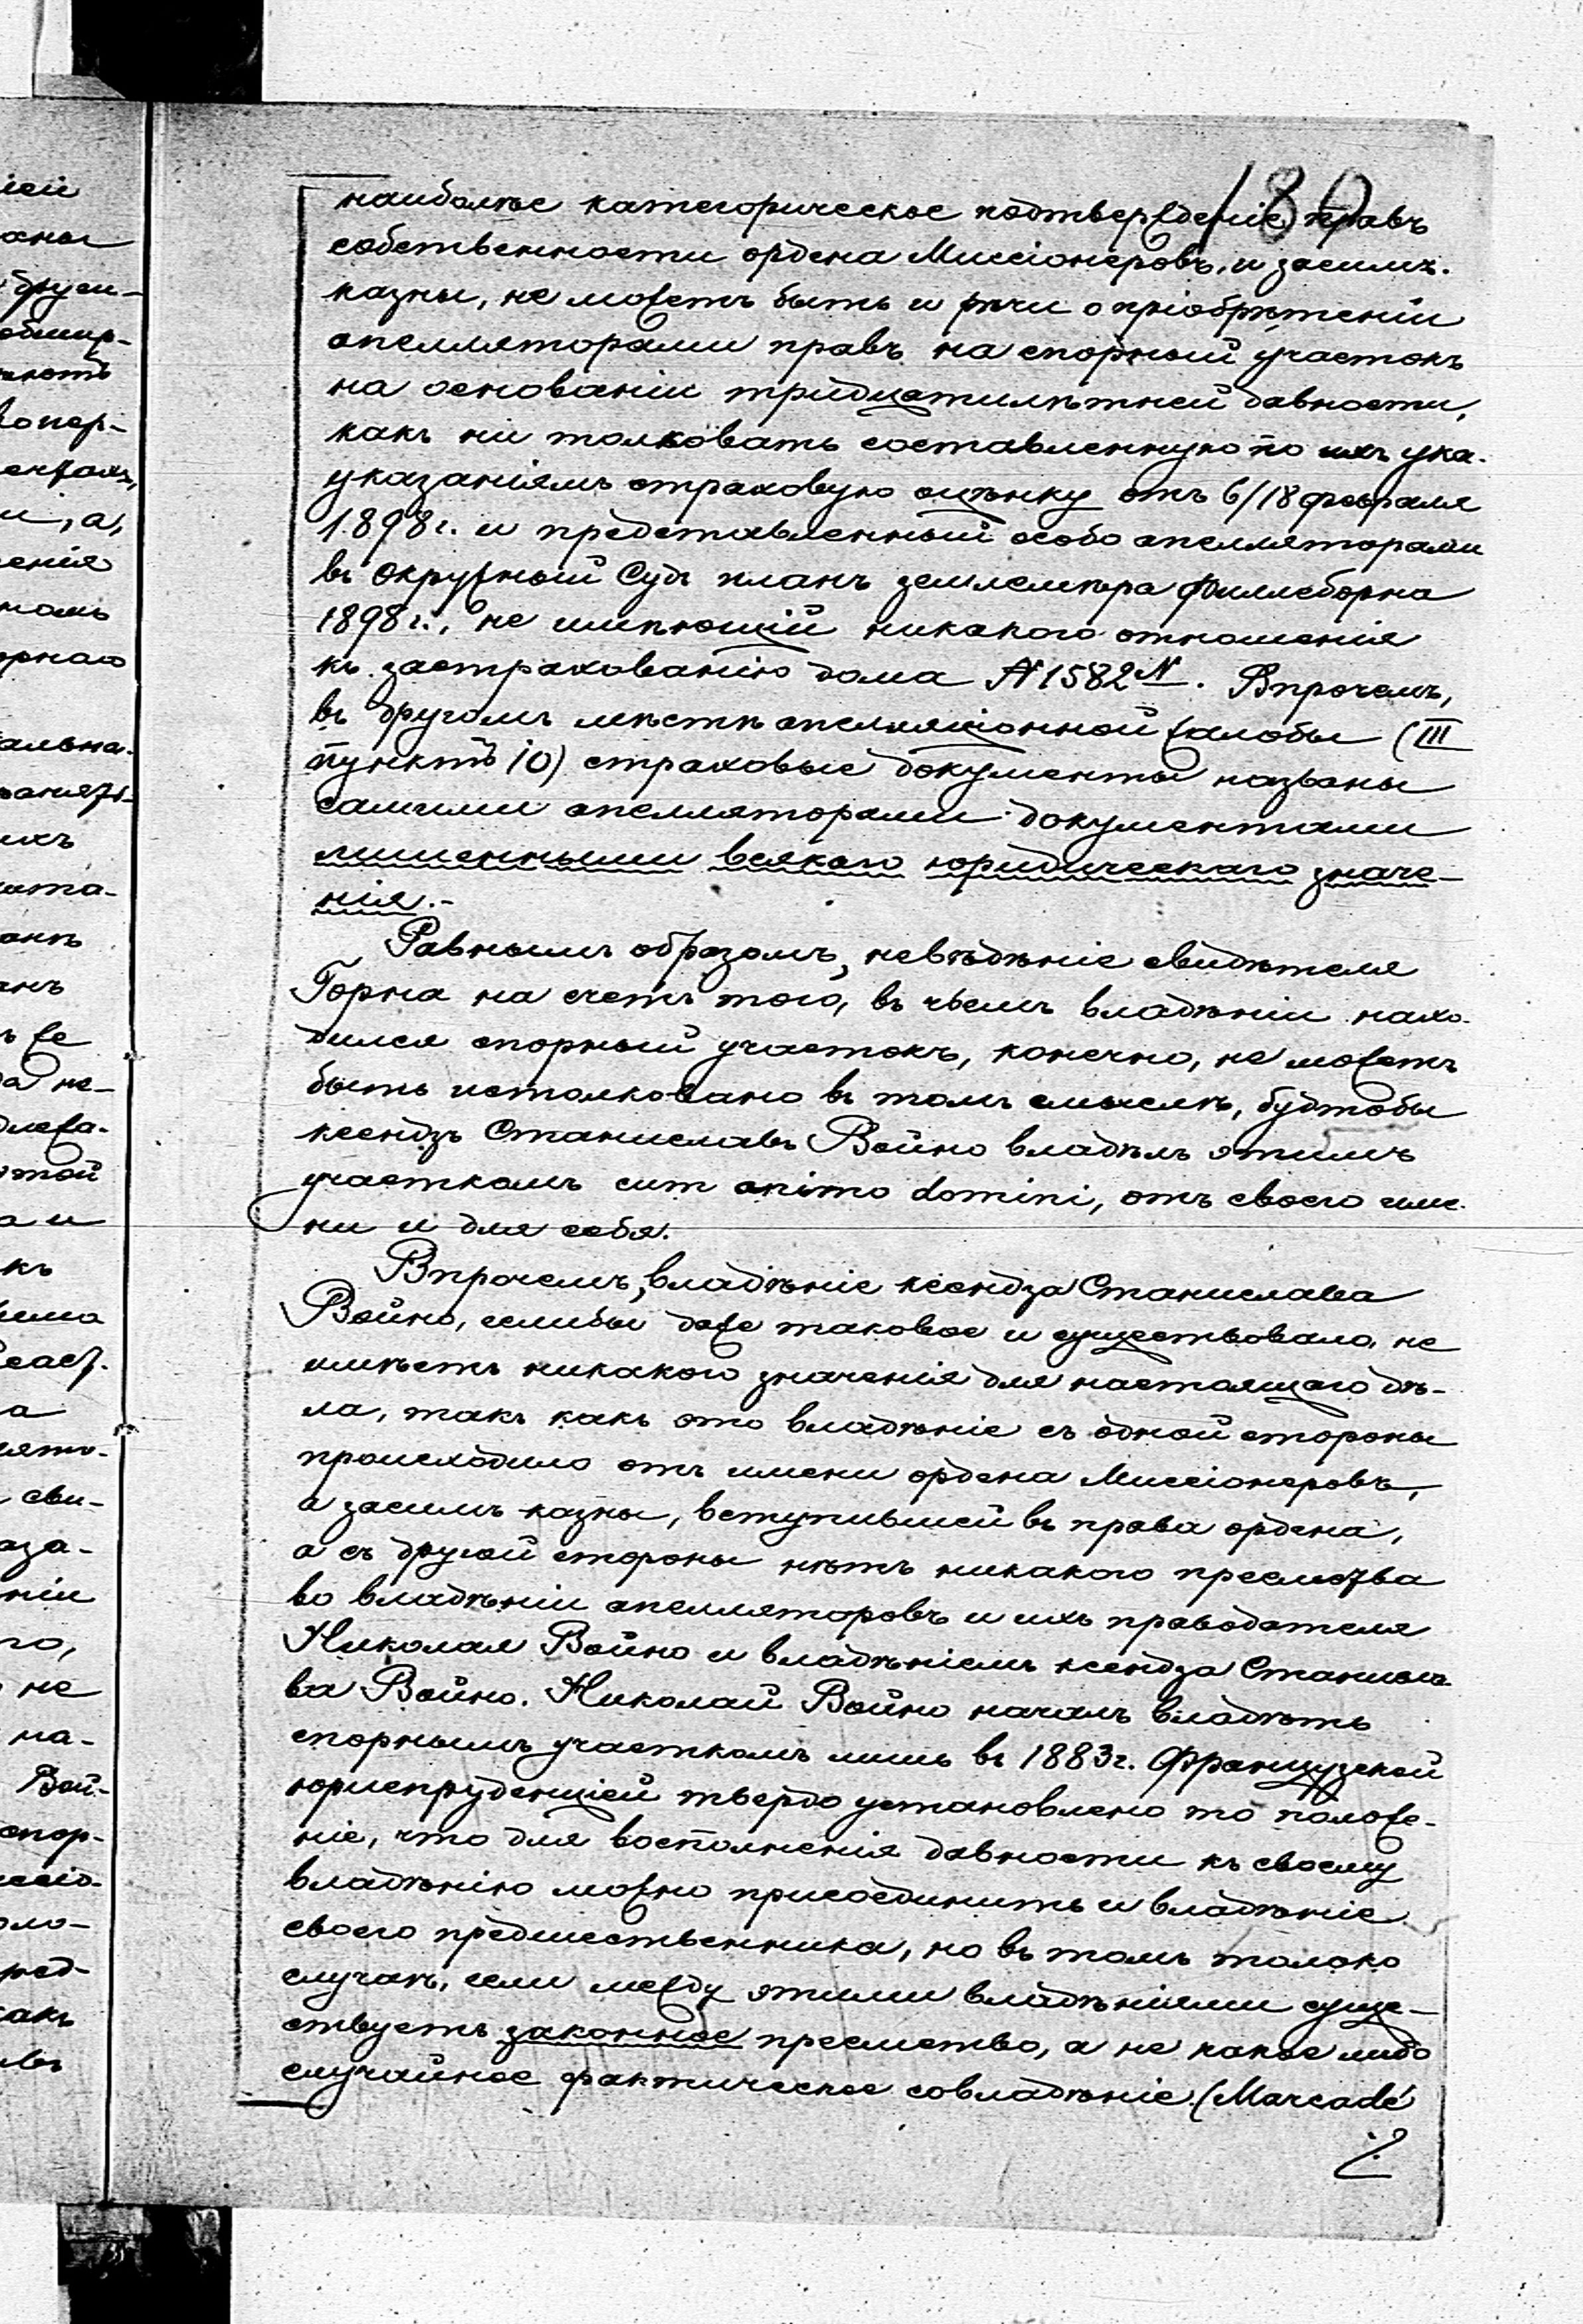 180
наиболѣе категорическое подтвержденіе правъ
собственности ордена Миссіонеровъ, и засимъ.
казны, не можетъ быть и рѣчи о пріобрѣтеніи
апелляторами правъ на спорный участокъ
на основаніи тридцатилѣтней давности,
какъ ни толковать составленную по ихъ ука-
указаніямъ страховую оцѣнку отъ 6/18 февраля
1898 г. и представленный особо апелляторами
въ Окружный Судъ планъ землемѣра Филлеборна
1898 г., не имѣющій никакого отношенія
къ застрахованію дома № 1582 N. Впрочемъ,
въ другомъ мѣстѣ апелляціонной жалобы (III
пунктъ 10) страховые документы названы
самими апелляторами документами
лишенными всякаго юридическаго значе-
нія.-
Равнымъ образомъ, невѣдѣніе свидѣтеля
Горна на счетъ того, въ чьемъ владѣніи нахо-
дился спорный участокъ, конечно, не можетъ
быть истолковано въ томъ смыслѣ, будтобы
ксендзъ Станиславъ Войно владѣлъ этимъ
участкомъ cum animo domini, отъ своего име-
ни и для себя.
Впрочемъ, владѣніе ксендза Станислава
Войно, еслибы даже таковое и существовало, не
имѣетъ никакого значенія для настоящаго дѣ-
ла, такъ какъ это владѣніе съ одной стороны
происходило отъ имени ордена Миссіонеровъ,
а засимъ казны, вступившей въ права ордена,
а съ другой стороны нѣтъ никакого преемства
во владѣніи апелляторовъ и ихъ праводателя
Николая Войно и владѣніемъ ксендза Станисла-
ва Войно. Николай Войно началъ владѣть
спорнымъ участкомъ лишь въ 1883 г. Французской
юриспруденціей твердо установлено то положе-
ніе, что для восполненія давности къ своему
владѣнію можно присоединить и владѣніе
своего предшественника, но въ томъ только
случаѣ, если между этими владѣніями суще-
ствуетъ законное преемство, а не какое либо
случайное фактическое совладѣніе. (Marcadé